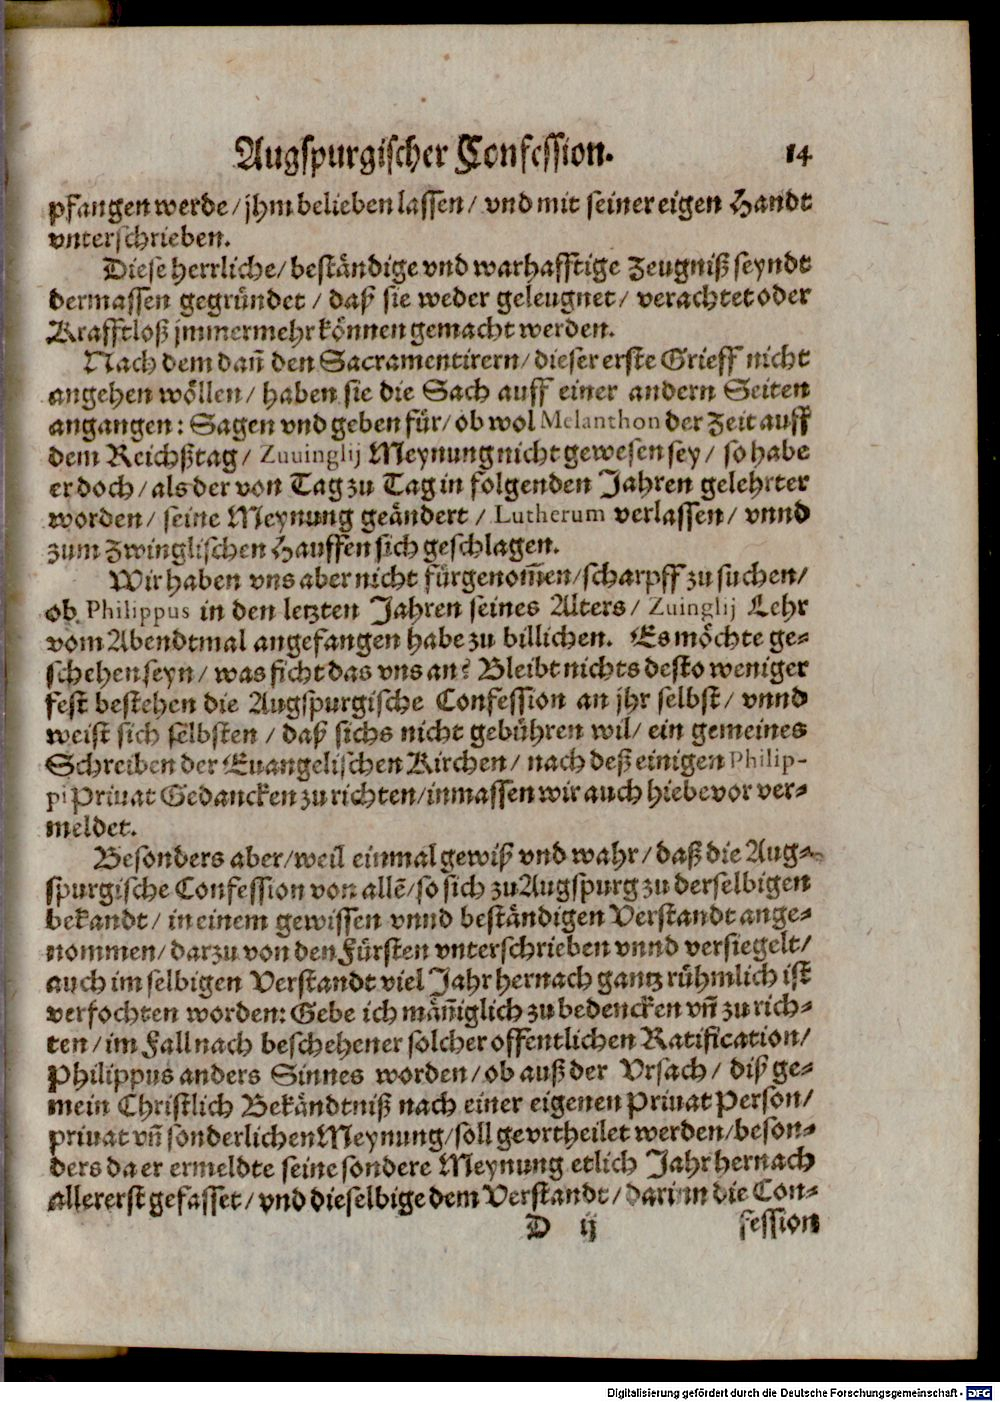 Augspurgischer Confession. 14
pfangen werde/ jhm belieben lassen/ vnd mit seiner eigen Handt
vnterschrieben.
Diese herrliche/ beständige vnd warhafftige Zeugniß seyndt
dermassen gegründet/ daß sie weder geleugnet/ verachtet oder
Krafftloß jmmermehr können gemacht werden.
Nach dem dañ den Sacramentirern/ dieser erste Grieff nicht
angehen wöllen/ haben sie die Sach auff einer andern Seiten
angangen: Sagen vnd geben für/ ob wol Melanthon der Zeit auff
dem Reichßtag/ Zuuinglij Meynung nicht gewesen sey/ so habe
er doch/ als der von Tag zu Tag in folgenden Jahren gelehrter
worden/ seine Meynung geändert/ Lutherum verlassen/ vnnd
zum Zwinglischen Hauffen sich geschlagen.
Wir haben vns aber nicht fürgenom̃en/ scharpff zu suchen/
ob Philippus in den letzten Jahren seines Alters/ Zuinglij Lehr
vom Abendtmal angefangen habe zu billichen. Es möchte ge-
schehen seyn/ was ficht das vns an? Bleibt nichts desto weniger
fest bestehen die Augspurgische Confession an jhr selbst/ vnnd
weist sich selbsten/ daß sichs nicht gebühren wil/ ein gemeines
Schreiben der Euangelischen Kirchen/ nach deß einigen Philip-
pi Priuat Gedancken zu richten/ inmassen wir auch hiebevor ver-
meldet.
Besonders aber/ weil einmal gewiß vnd wahr/ daß die Aug-
spurgische Confession von allẽ/ so sich zu Augspurg zu derselbigen
bekandt/ in einem gewissen vnnd beständigen Verstandt ange-
nommen/ darzu von den Fürsten vnterschrieben vnnd versiegelt/
auch im selbigen Verstandt viel Jahr hernach gantz rühmlich ist
verfochten worden: Gebe ich mäñiglich zu bedencken vñ zu rich-
ten/ im Fall nach beschehener solcher offentlichen Ratification/
Philippus anders Sinnes worden/ ob auß der Vrsach/ diß ge-
mein Christlich Bekändtniß nach einer eigenen Priuat Person/
priuat vñ sonderlichen Meynung/ soll gevrtheilet werden/ beson-
ders da er ermeldte seine sondere Meynung etlich Jahr hernach
allererst gefasset/ vnd dieselbige dem Verstandt/ darinn die Con-
D ij fession
Digitalisierung gefördert durch die Deutsche Forschungsgemeinschaft - DFG